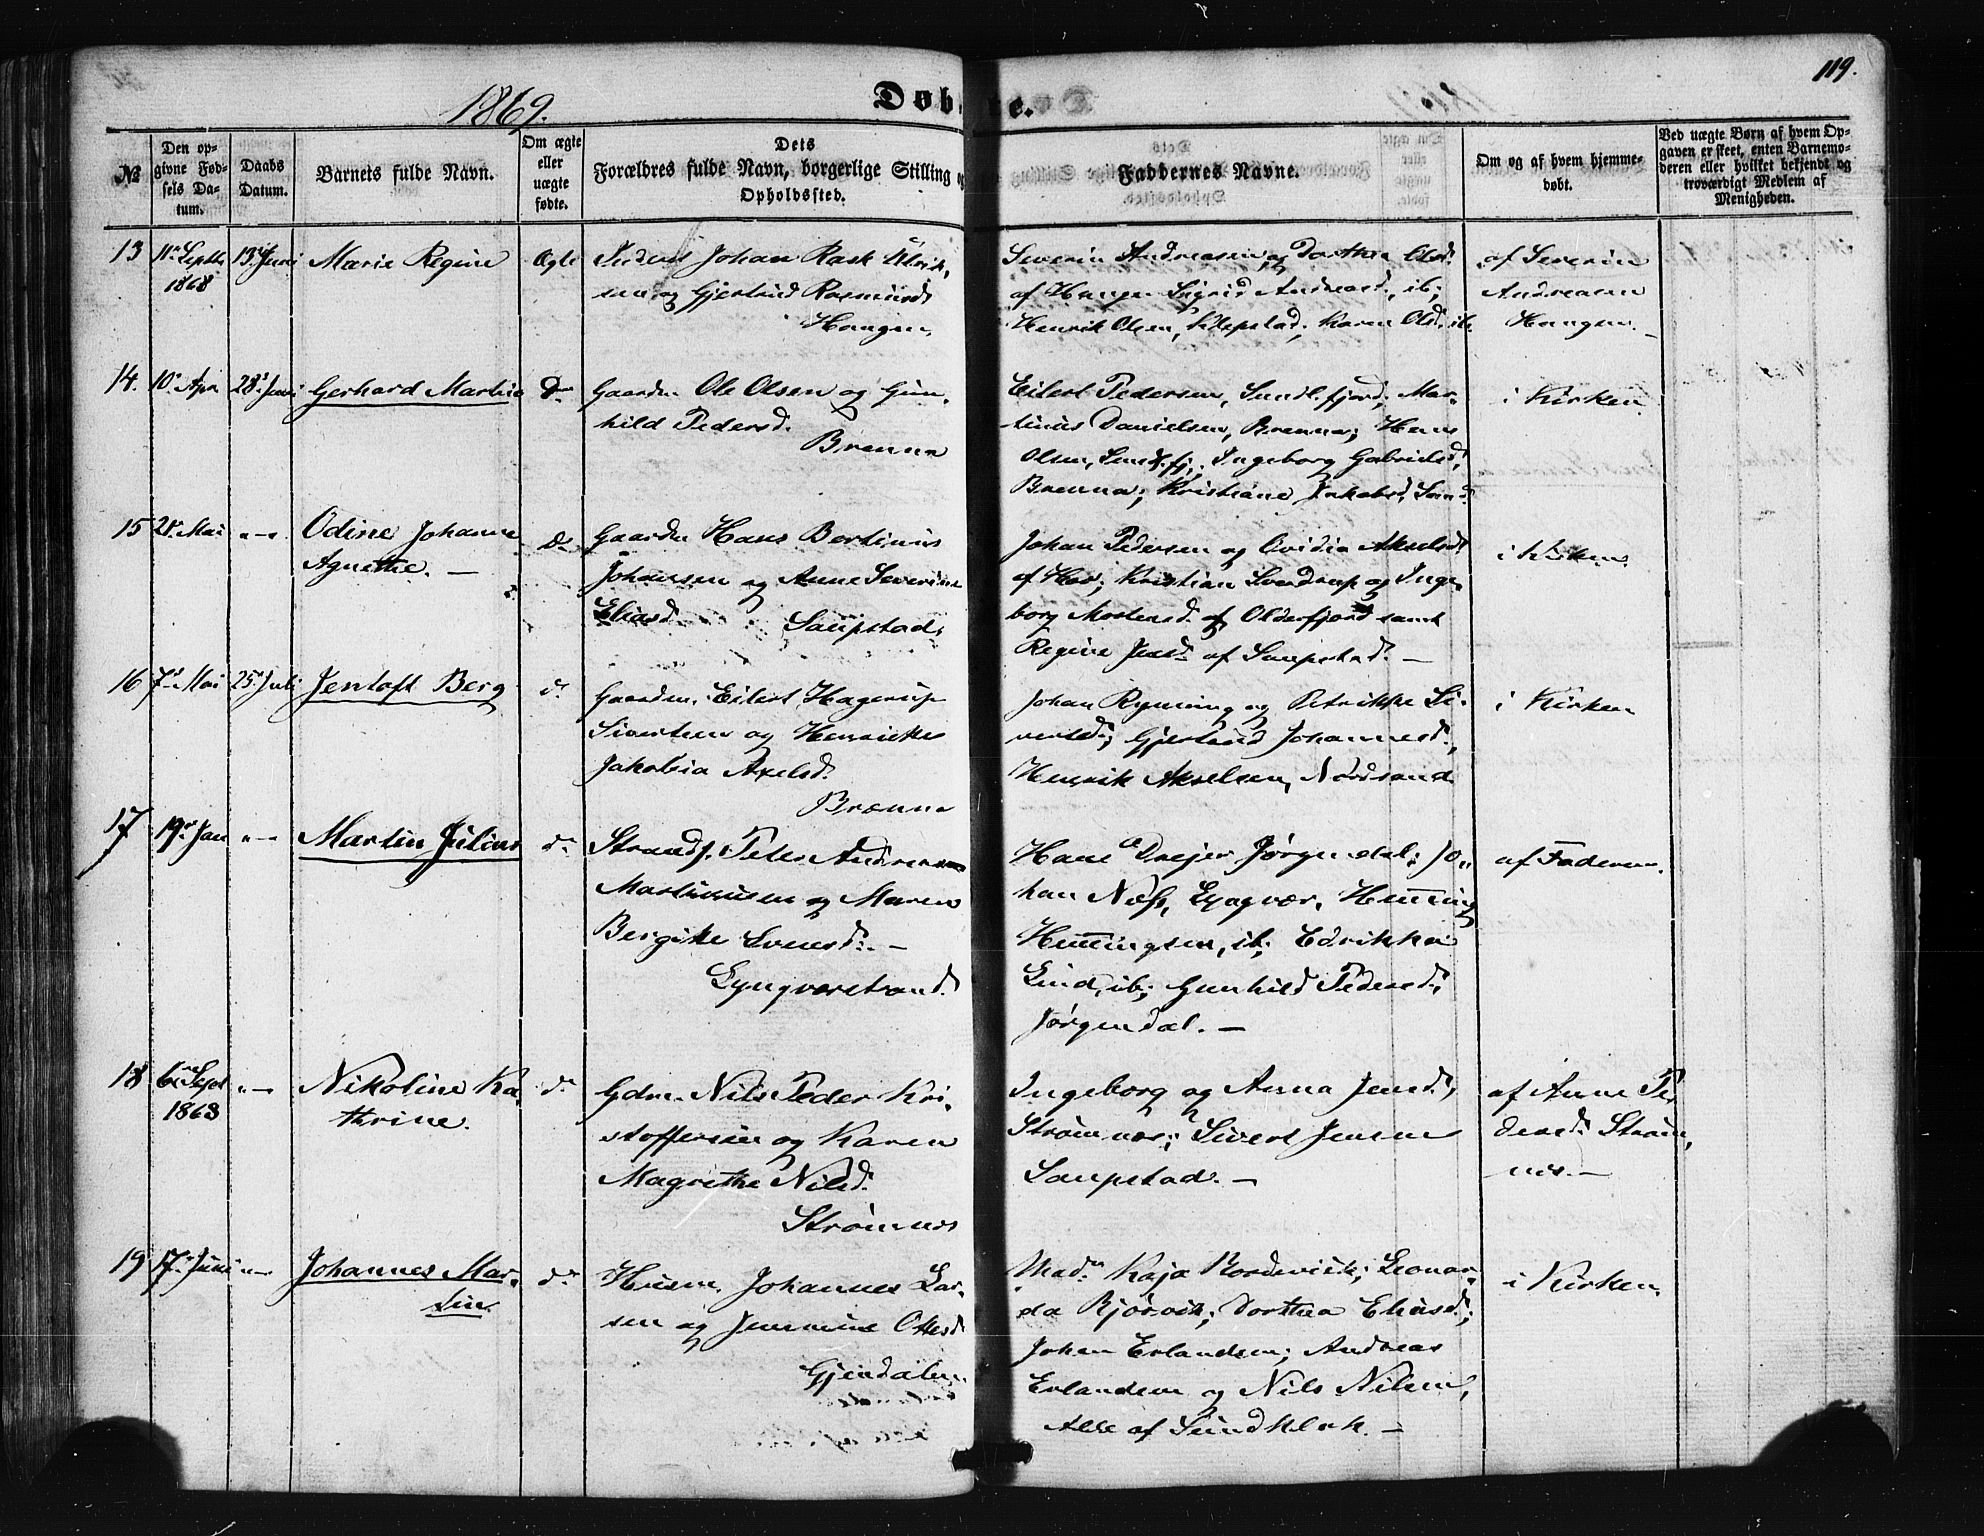 1869.
Døbte.
119.
№
Den opgivne Fødsels Datum.
Daabs Datum.
Barnets fulde Navn.
Om ægte eller uægte fødte.
Dets Forældres fulde Navn, borgerlige Stilling og Opholdssted.
Faddernes Navne.
Om og af hvem hjemmedøbt.
Ved uægte Børn af hvem Opgaven er skeet, enten Barnemoderen eller hvilket bekjendt og troværdigt Medlem af Menigheden.
13 11te Septbr 1868 13de Juni Marie Regine Ægte
Johan Rask Ulrik-
sen og Gjertrud Rasmusd.
Haugen.
Severin Andreasen og Dorthea Olsd.
af Haugen Sigrid Andreasd., ib;
Henrik Olsen, Klepstad; Karen Olsd. ib.
af Severin
Andreasen
Haugen. –
14. 10de Apr 28de Juni Gerhard Martin Do
Gaardm. Ole Olsen og Gun-
hild Pedersd.
Brenna
Eilert Pedersen, Sundl.fjord; Mar-
tinus Danielsen, Brenna; Hans
Olsen, Sundl.fj.; Ingeborg Gabrielsd,
Brenna; Kristiane Jakobsd, Sund
i Kirken
15 21de Mai "–"
Odine Johanne
Agnethe. – Do
Gaardm Hans Bertinus
Johansen og Anne Severine
Eliasd. Saupstad
Johan Pedersen og Ovidia Akselsd
af Hov; Kristian Sverdrup og Inge-
borg Mortensd. af Olderfjord samt
Regine Jensd. af Saupstad. –
i Kirken
16 7de Mai 25de Juli Jentoft Berg do
Gaardm. Eilert Hagerup
Sivertsen og Henrikke
Jakobia Axelsd.
Brenna
Johan Rynning og Petrikke Si-
vertsd; Gjertrud Johannesd.,
Henrik Akselsen, Nordsand
i Kirken
17 19de Jan "–" Martin Julius do
Strands. Peter Andreas
Martinusen og Maren
Bergitte Svensd. –
Lyngværstrand
Hans Drejer Jørgendal; Jo-
han Næss, Lyngvær, Hemming
Hemmingsen, ib; Edrikka
Lind, ib; Gunhild Pedersd.,
Jørgendal. –
af Faderen.
18 6te Sept 1868 "–" Nikoline Ka-
thrine. do
Gdm. Nils Peder Kri-
stoffersen og Karen
Magrethe Nilsd.
Strømnes
Ingeborg og Anna Jensd.,
Strømnes; Sivert Jensen
Saupstad. –
af Anne Pe-
dersd. Strøm-
nes. –
19 17de Juni "–" Johannes Mar-
tin do
Husm. Johannes Lar-
sen og Jensine Ottesd
Gjendalen
Mad. Kaja Bordevick; Leonar-
da Bjørvik; Dorthea Eliasd.;
Johan Erlandsen; Andreas
Erlandsen og Nils Nilsen,
Alle af Sundklak. –
i Kirken